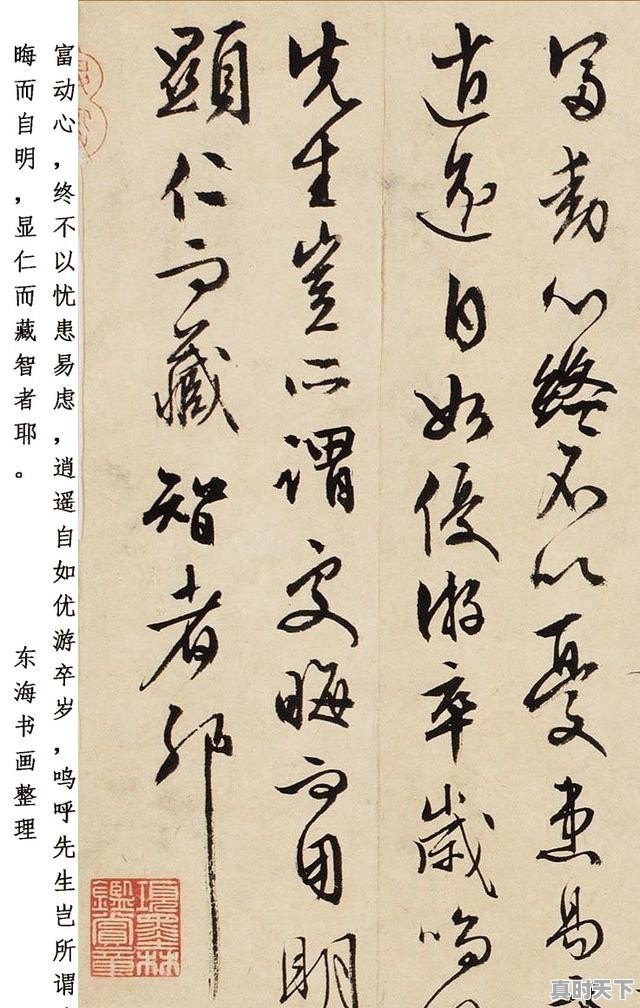 富動心終不以憂患易
逍遥自如優游卒歲嗚
先生豈所謂處晦而用明
顯仁而藏智者耶
項墨林鑑賞章
富动心，终不以忧患易虑，逍遥自如优游卒岁，呜呼先生岂所谓
晦而自明，显仁而藏智者耶。 东海书画整理
真时天下